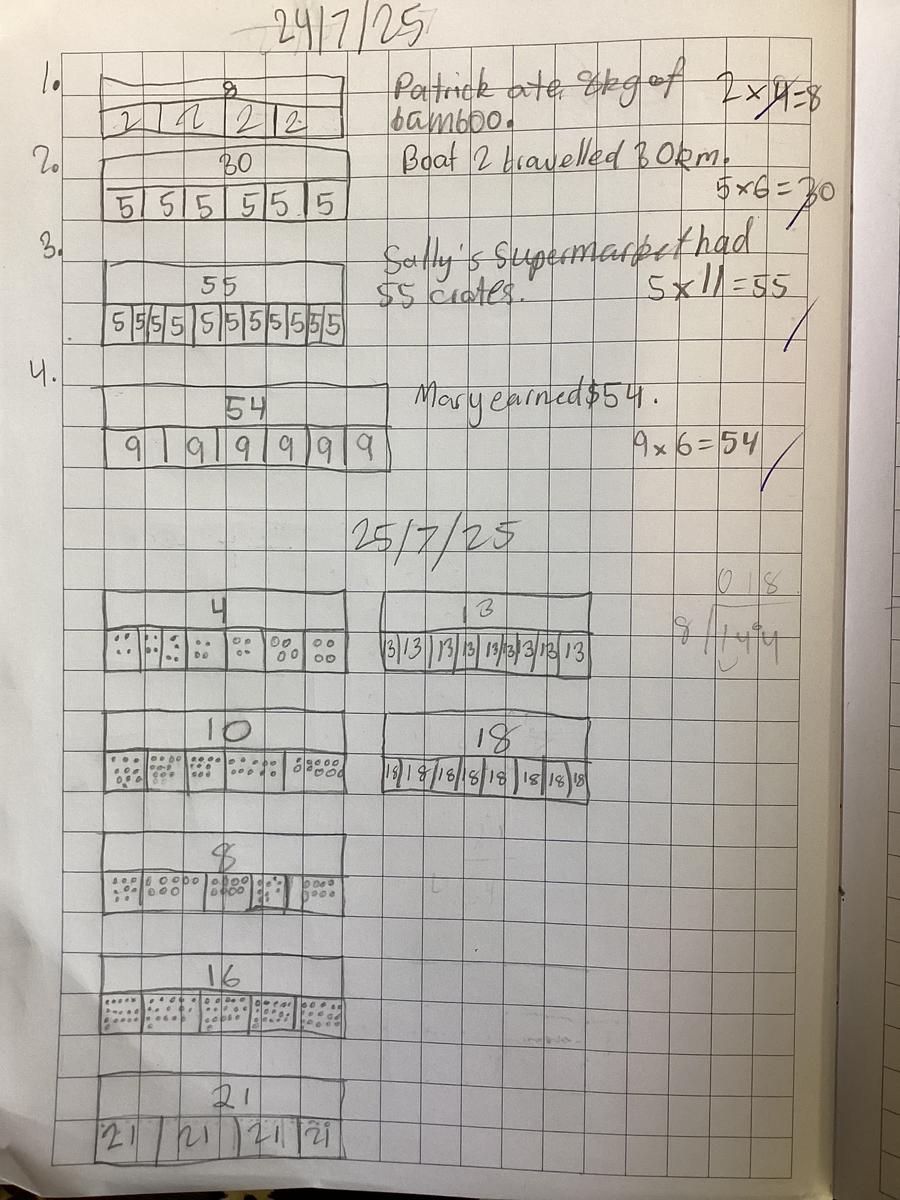 24/7/25
1.
8
2 2 2 2
Patrick ate 8kg of
bamboo.
2 × 4 = 8
2.
30
5 5 5 5 5 5
Boat 2 travelled 30km.
5 × 6 = 30
3.
55
5 5 5 5 5 5 5 5 5 5 5
Sally's Supermarket had
55 crates.
5 × 11 = 55
4.
54
9 9 9 9 9 9
Mary earned $54.
9 × 6 = 54
25/7/25
4
13
13 13 13 13 13 13 13 13 13
018
8 144
10
18
18 18 18 18 18 18 18 18
8
16
21
21 21 21 21